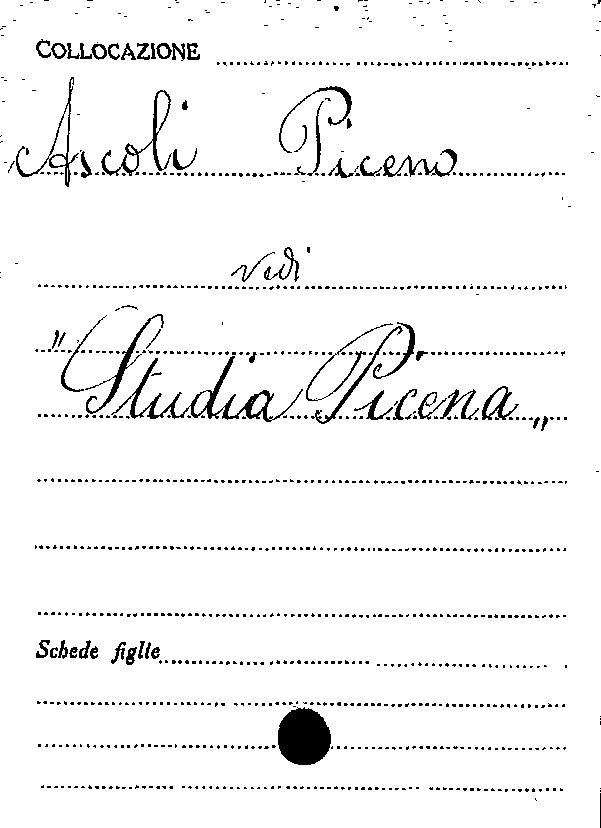 COLLOCAZIONE
Ascoli Piceno
vedi
"Studia Picena„
Schede figlie